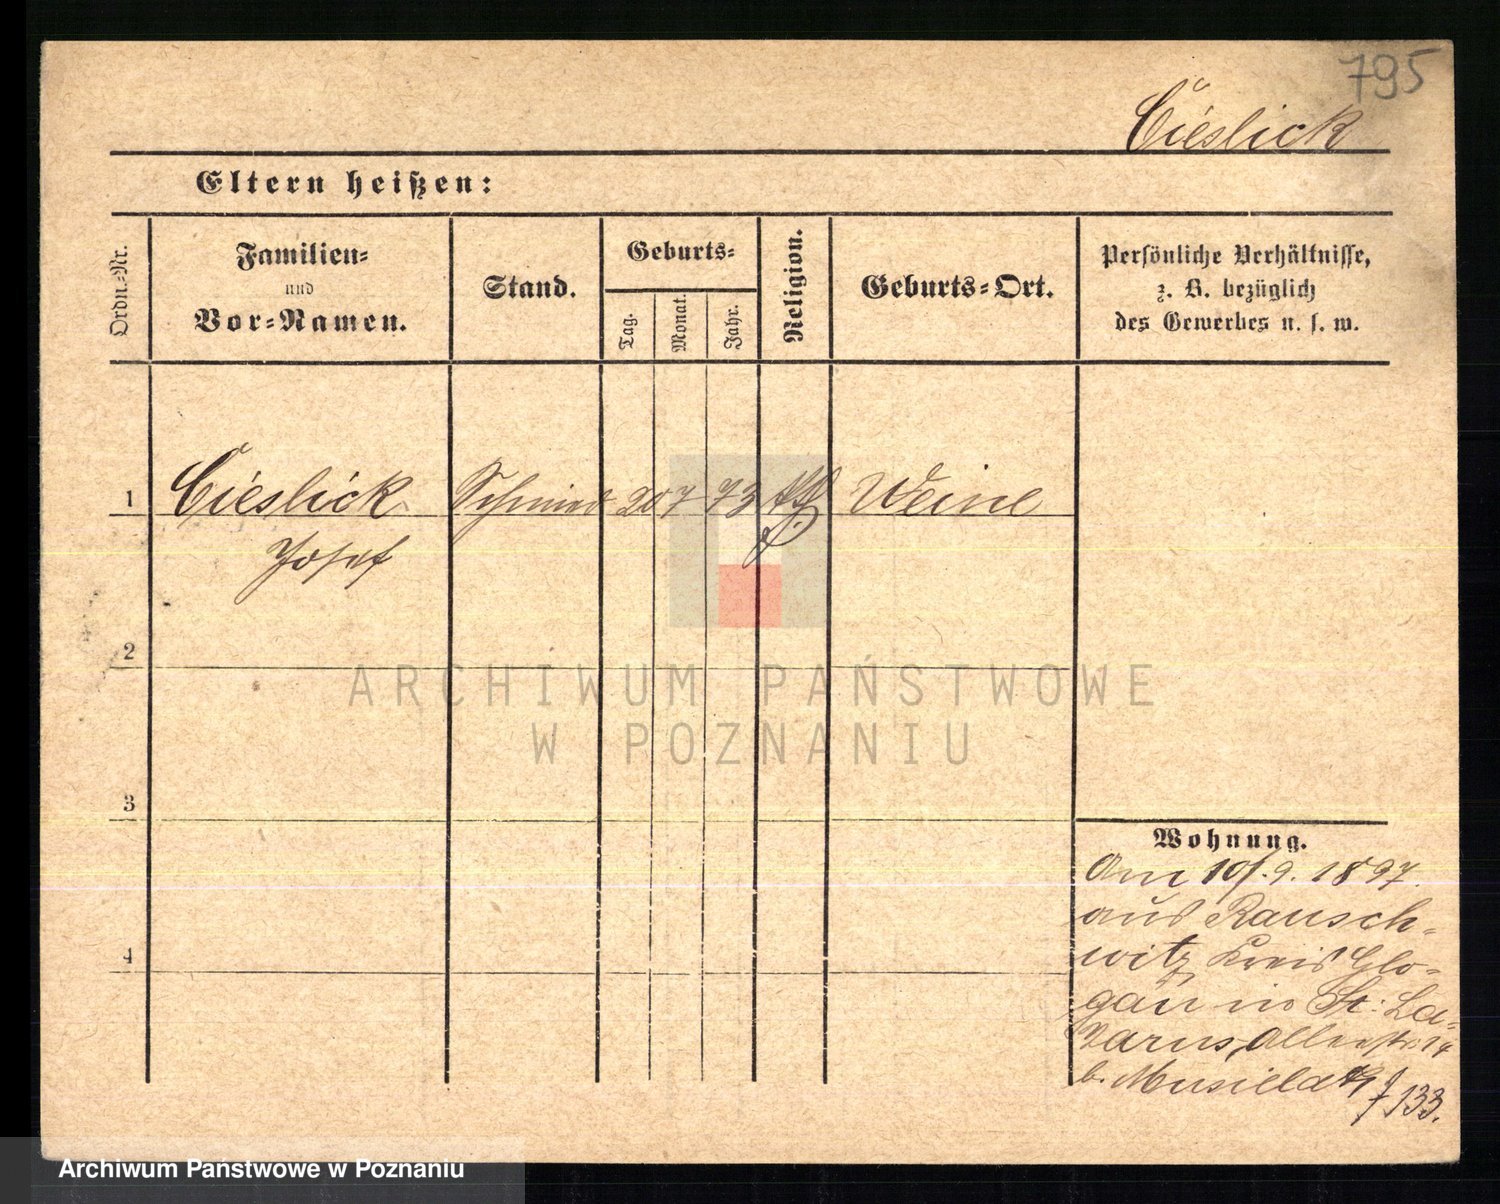 795
Cieslick
Eltern heißen:
Ordn.-Nr.
Familien-
und
Vor-Namen.
Stand.
Geburts-
Tag.
Monat.
Jahr.
Religion.
Geburts-Ort.
Persönliche Verhältnisse,
z. B. bezüglich
des Gewerbes u. s. w.
1 Cieslick Schmied 20 7 73 kth Weine
Josef
2
3
4
Wohnung.
Am 10/. 9. 1897.
aus Rausch-
witz, Kreis Glo-
gau in St: La-
zarus, 14
b. Musiela
133.
ARCHIWUM PAŃSTWOWE
W POZNANIU
Archiwum Państwowe w Poznaniu